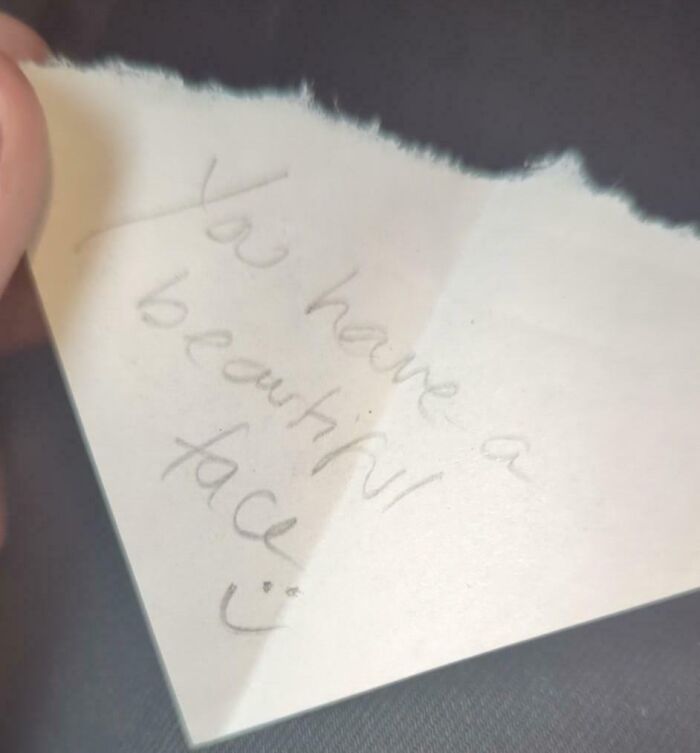 You have a
beautiful
face
:)